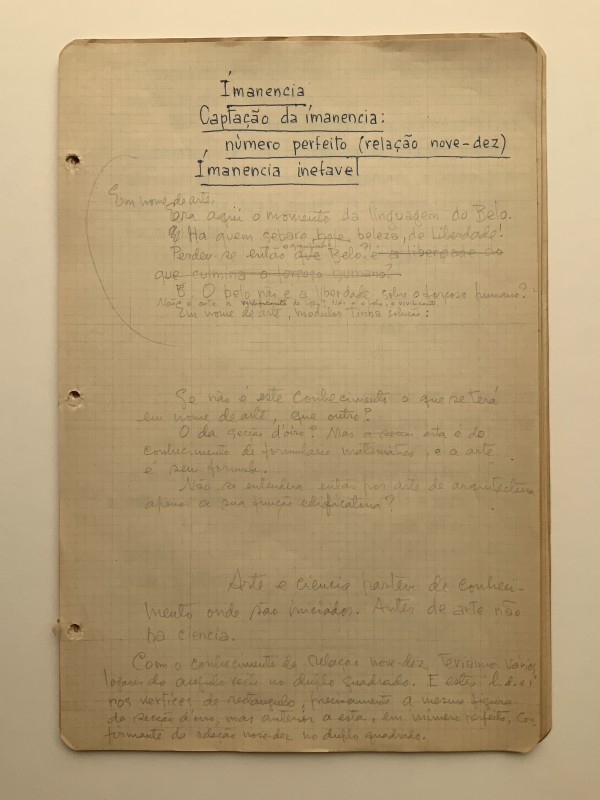 Ímanencia
Captação da ímanencia:
número perfeito (relação nove-dez)
Ímanencia inefavel
Em nome de arte.
Era aqui o momento da linguagem do Belo.
Ha quem beleza, de Liberdade!
Perder-se então que Belo? e a liberdade do
que culmina o esforço humano?
O belo não é a liberdade, sobre o esforço humano?
Em nome de arte, modulor tinha solução:
Se não é este conhecimento o que se terá
em nome de arte, que outro?
O da secção d'oiro? Mas esta é do
conhecimento de formulario matematico, e a arte
é sem formula.
Não se entendera então por arte de arquitectura
apenas a sua função edificatoria?
Arte e ciencia partem de conheci-
mento onde são iniciados. Antes de arte não
ha ciencia.
Com o conhecimento da relação nove-dez, varios
lugares do angulo recto no duplo quadrado. E estes
nos vertices do rectangulo, precisamente a mesma figura
da secção d'oiro, mas anterior a esta, em número perfeito, con-
formante da relação nove-dez no duplo quadrado.